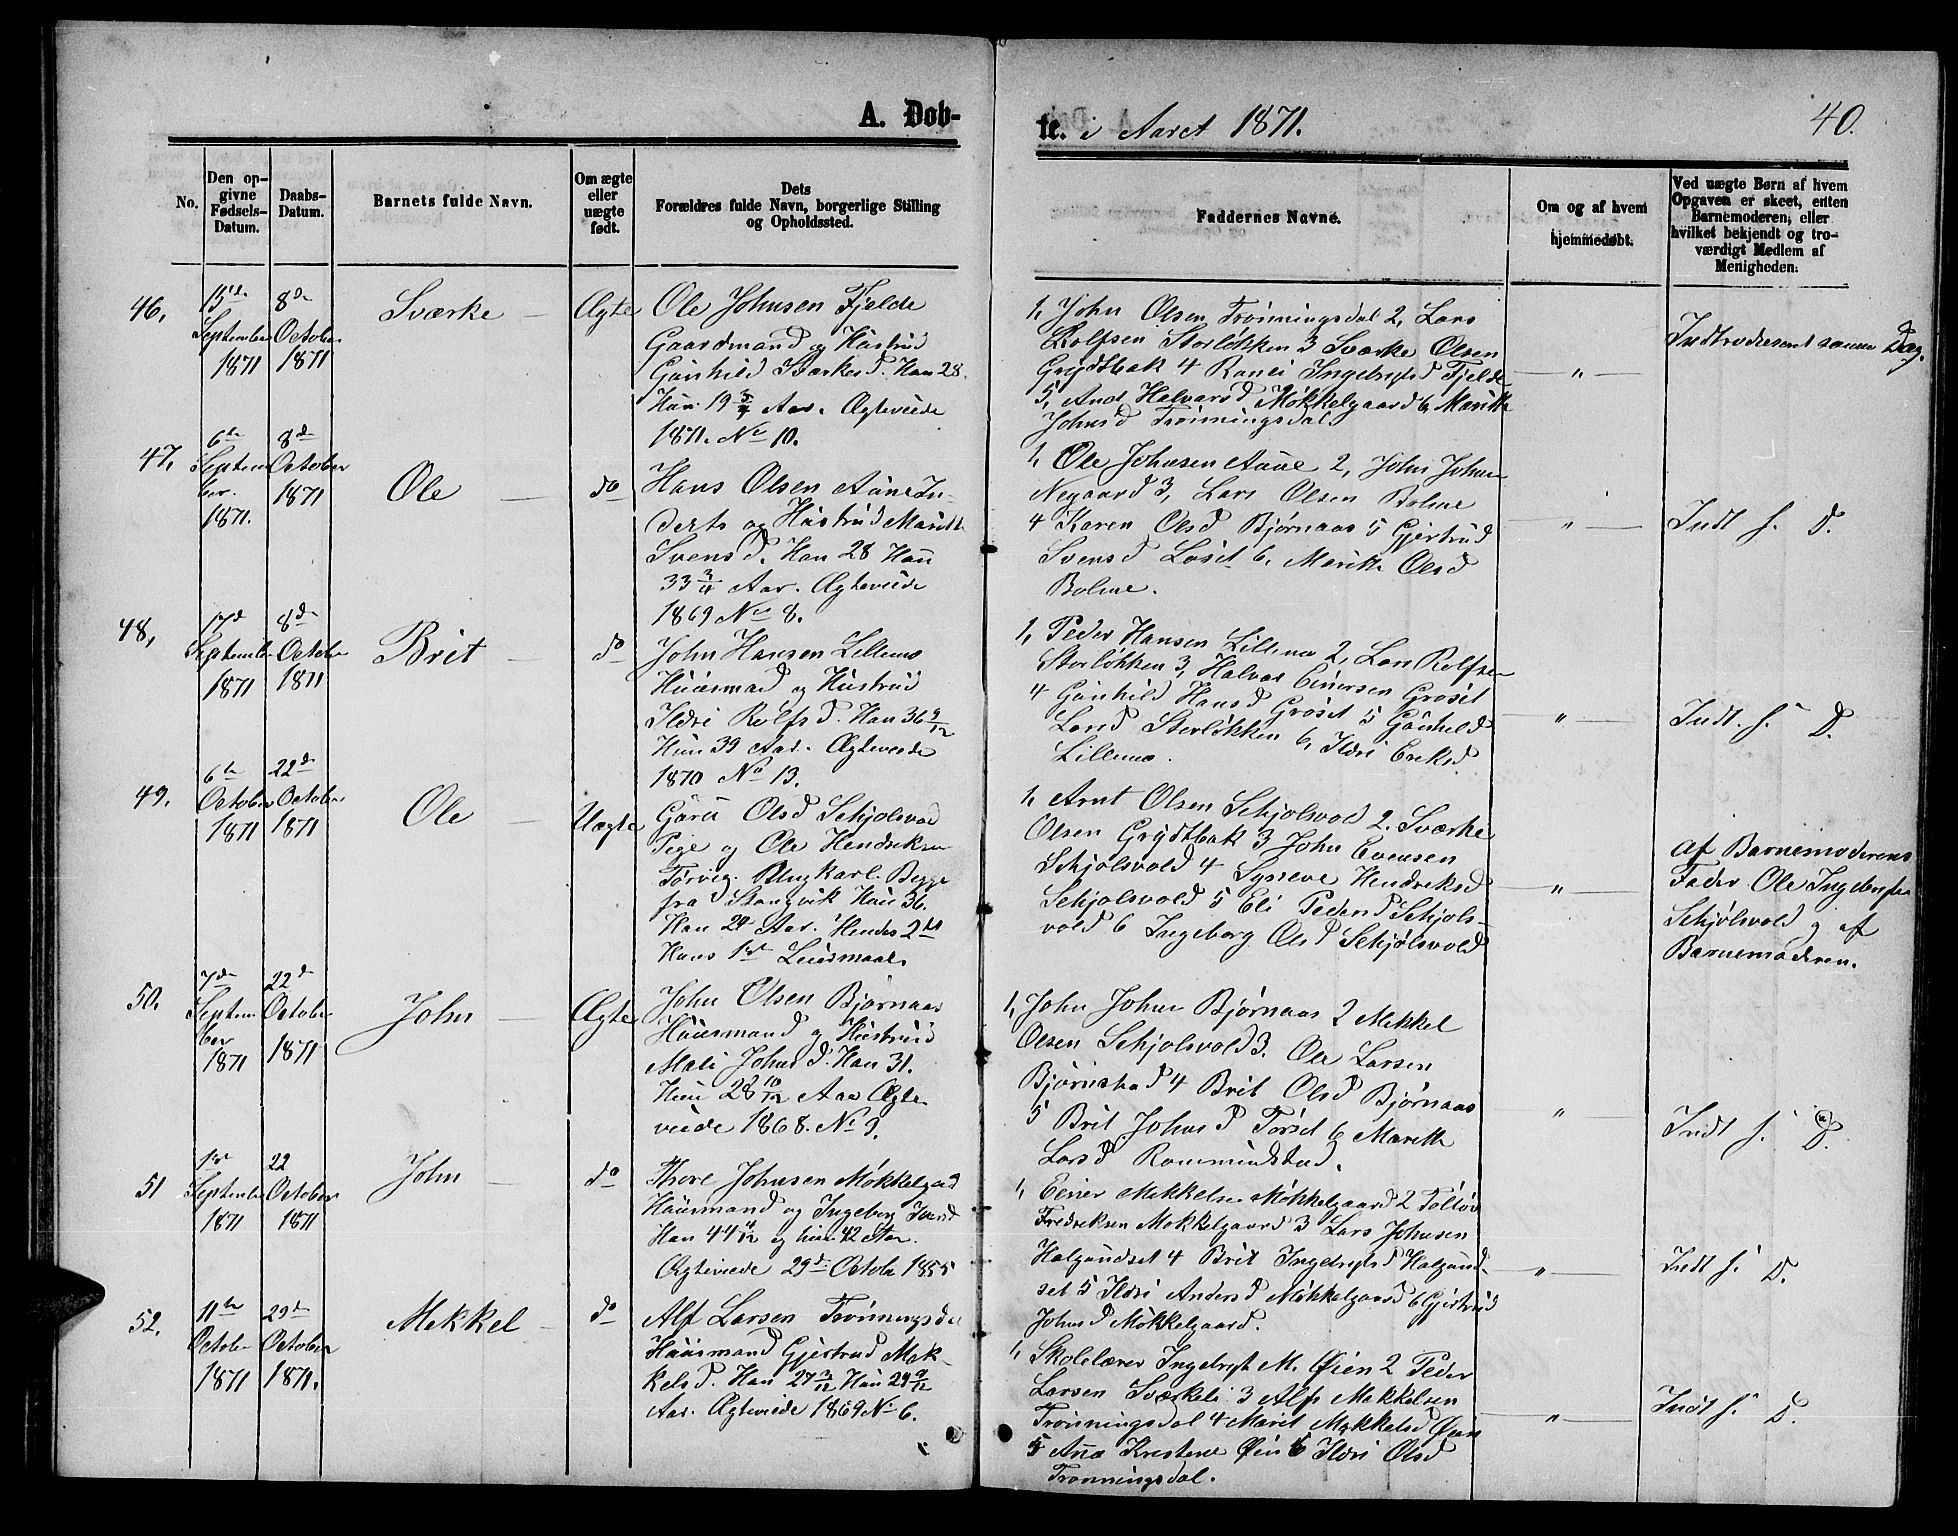 A. Døb-
te. i Aaret 1871.
40.
No.
Den op-
givne
Fødsels-
Datum.
Daabs-
Datum.
Barnets fulde Navn.
Om ægte
eller
uægte
født.
Dets
Forældres fulde Navn, borgerlige Stilling
og Opholdssted.
Faddernes Navne.
Om og af hvem
hjemmedøbt.
Ved uægte Børn af hvem
Opgaven er skeet, enten
Barnemoderen, eller
hvilket bekjendt og tro-
værdigt Medlem af
Menigheden.
46,
15de
September
1871
8de
October
1871
Sværke
Ægte
Ole Johnsen Fjelde
Gaardmand og Hustrud
Gunhild Sværkesd. Han 28
Hun 19 3/4 Aar. Ægteviede
1871. No 10.
1, John Olsen Trønningsdal 2, Lars
Rolfsen Storløkken 3 Sværke Olsen
Grydtbak 4 Ranei Ingebrigtsd Fjelde
5, And Halvarsd Møkkelgaard 6, Maritte
Johnsd Trønningsdal
"
Indtroduseret samme Dag.
47,
6te
Septem-
ber.
1871.
8de
October
1871
Ole
do
Hans Olsen Aune In-
derts og Hustrud Maritte
Svensd. Han 28 Hun
33 3/4 Aar. Ægteviede
1869 No 8.
1, Ole Johnsen Aune 2, John Johnsen
Negaard 3, Lars Olsen Bolme
4 Karen Olsd Bjørnaas 5 Gjertrud
Svensd Løset 6, Maritte Olsd
Bolme.
"
Indt s. D.
48,
17de
September
1871
8de
October
1871
Brit
do
John Hansen Lillemo
Huusmand og Hustrud
Ildri Rolfsd. Han 36 9/12
Hun 39 Aar. Ægteviede
1870 No 13.
1, Peder Hansen Lillemo 2, Lars Rolfsen
Storløkken 3, Halvor Einersen Grøset
4 Gunhild Hansd Grøset 5 Gunhild
Larsd Storløkken 6, Ildri Eriksd
Lillemo.
"
Indt. s. D.
49,
6te
October
1871
22de
October
1871
Ole
Uægte
Guru Olsd Schjølsvold
Pige og Ole Hendriksen
Torvig. Ungkarl. Begge
fra Stangvik Hun 36.
Han 24 Aar. Hendes 2det
Hans 1ste Leiesmaal.
1, Arnt Olsen Schjølsvold 2. Sværke
Olsen Grydtbak 3 John Evensen
Schjølsvold 4 Synneve Hendriksd
Schjølsvold 5 Eli Pedersd Schjøls-
vold 6 Ingeborg Olsd Schjølsvold
"
Af Barnemoderens
Fader Ole Ingebrigtsen
Schjølsvold og af
Barnemoderen.
50.
7de
Septem
ber
1871
22de
October
1871
John
Ægte
John Olsen Bjørnaas
Huusmand og Hustrud
Mali Johnsd. Han 31.
Hun 28 10/12 Aar Ægte-
viede 1868. No 9.
1, John Johnsen Bjørnaas 2 Mekkel
Olsen Schjølsvold 3. Ole Larsen
Bjørnstad 4 Brit Olsd Bjørnaas
5 Brit Johnsd Torset 6 Maritte
Larsd Rommundstad.
"
Indt s. D.
51
1ste
September
1871
22
October
1871
John
do
Thore Johnsen Møkkelgaard
Huusmand og Ingeborg
Han 44 og hun 42 Aar.
Ægteviede 29de October 1855
1, Einer Mekkelsen Møkkelgaard 2
Fredriksen Møkkelgaard 3 Lars Johnsen
Halgundset 4 Brit Ingebrigtsd Halgund-
set 5 Ildri Andersd Møkkelgaard 6 Gjertrud
Johnsd Møkkelgaard.
"
Indt s. D.
52.
11te
October
1871
29de
October
1871.
Mekkel
do
Alf Larsen Trønningsdal
Huusmand Gjertrud Mek-
kelsd. Han 27 Hun 29 9/12
Aar. Ægteviede 1869 No 6.
1, Skolelærer Ingebrigt M. Øien 2 Peder
Larsen Sværkeli 3 Alf Mekkelsen
Trønningsdal 4 Marit Mekkelsd Øien
5 Ana Kristene Øien 6 Ildri Olsd
Trønningsdal.
"
Indt s. D.